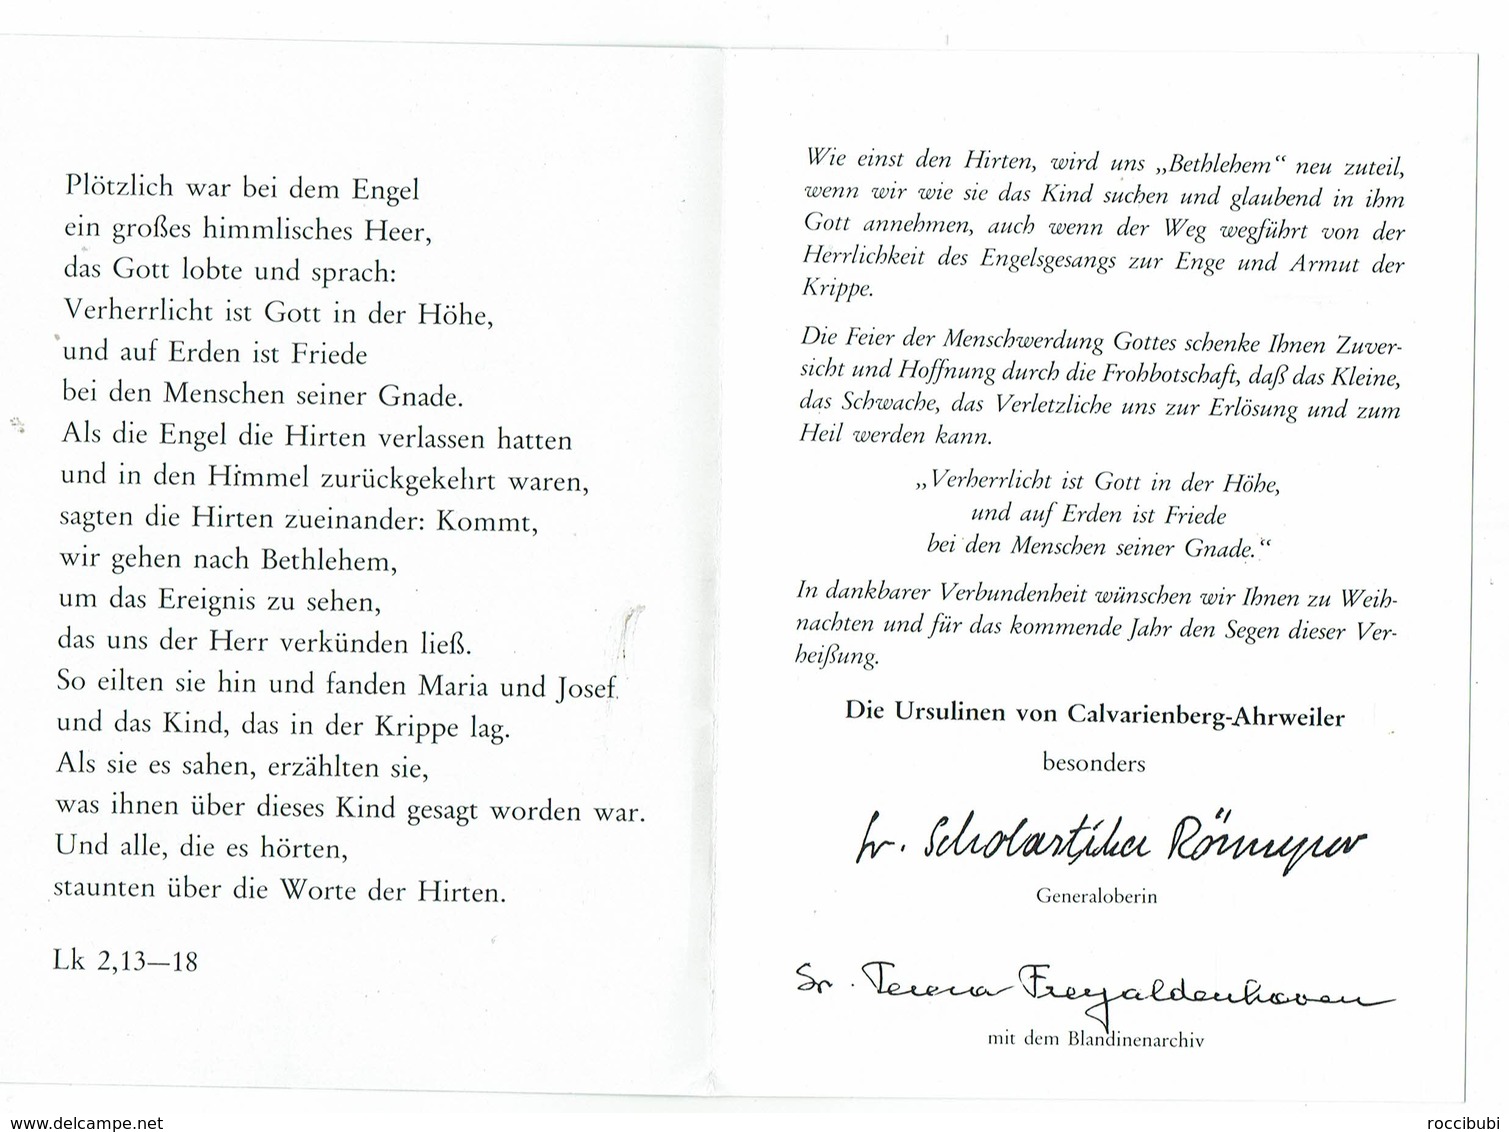 Plötzlich war bei dem Engel
ein großes himmlisches Heer,
das Gott lobte und sprach:
Verherrlicht ist Gott in der Höhe,
und auf Erden ist Friede
bei den Menschen seiner Gnade.
Als die Engel die Hirten verlassen hatten
und in den Himmel zurückgekehrt waren,
sagten die Hirten zueinander: Kommt,
wir gehen nach Bethlehem,
um das Ereignis zu sehen,
das uns der Herr verkünden ließ.
So eilten sie hin und fanden Maria und Josef
und das Kind, das in der Krippe lag.
Als sie es sahen, erzählten sie,
was ihnen über dieses Kind gesagt worden war.
Und alle, die es hörten,
staunten über die Worte der Hirten.
Lk 2,13—18
Wie einst den Hirten, wird uns „Bethlehem“ neu zuteil,
wenn wir wie sie das Kind suchen und glaubend in ihm
Gott annehmen, auch wenn der Weg wegführt von der
Herrlichkeit des Engelsgesangs zur Enge und Armut der
Krippe.
Die Feier der Menschwerdung Gottes schenke Ihnen Zuver-
sicht und Hoffnung durch die Frohbotschaft, daß das Kleine,
das Schwache, das Verletzliche uns zur Erlösung und zum
Heil werden kann.
„Verherrlicht ist Gott in der Höhe,
und auf Erden ist Friede
bei den Menschen seiner Gnade.“
In dankbarer Verbundenheit wünschen wir Ihnen zu Weih-
nachten und für das kommende Jahr den Segen dieser Ver-
heißung.
Die Ursulinen von Calvarienberg-Ahrweiler
besonders
Sr. Scholastika
Generaloberin
Sr. Teresa Freyaldenhoven
mit dem Blandinenarchiv
www.delcampe.net
roccibubi